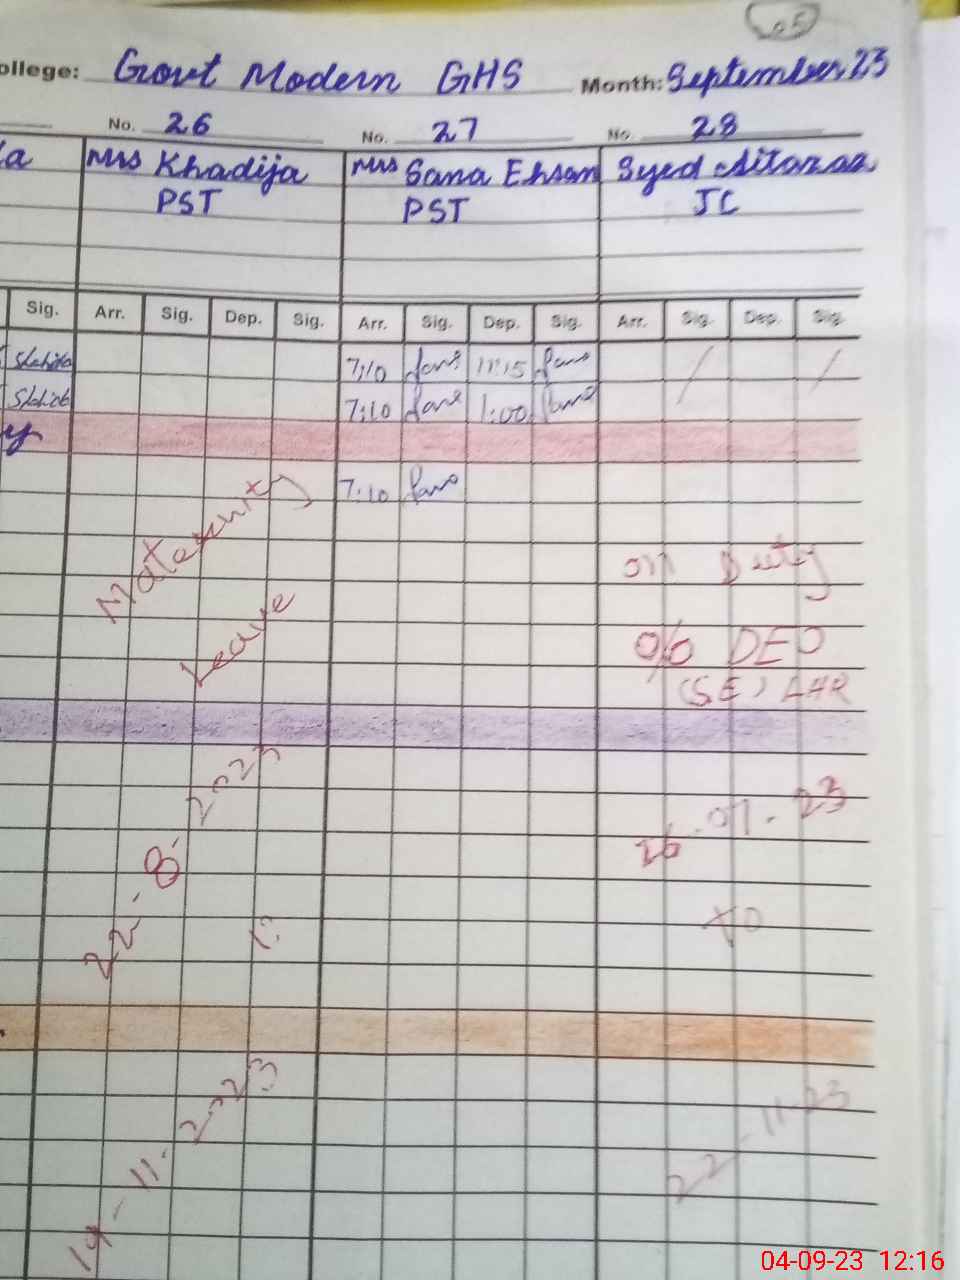 05
ollege: Govt Modern GHS Month: September 23
No. 26 No. 27 No. 28
Mrs Khadija Mrs Sana Ehsan Syed
PST PST JC
Sig. Arr. Sig. Dep. Sig. Arr. Sig. Dep. Sig. Arr. Sig. Dep. Sig.
7:10 11:15
7:10 1:00
7:10
Maternity
Leave
22-8-2023
19-11-2023
on Duty
O/O DEO
(SE) LHR
26-07-23
TO
22-11-23
04-09-23 12:16